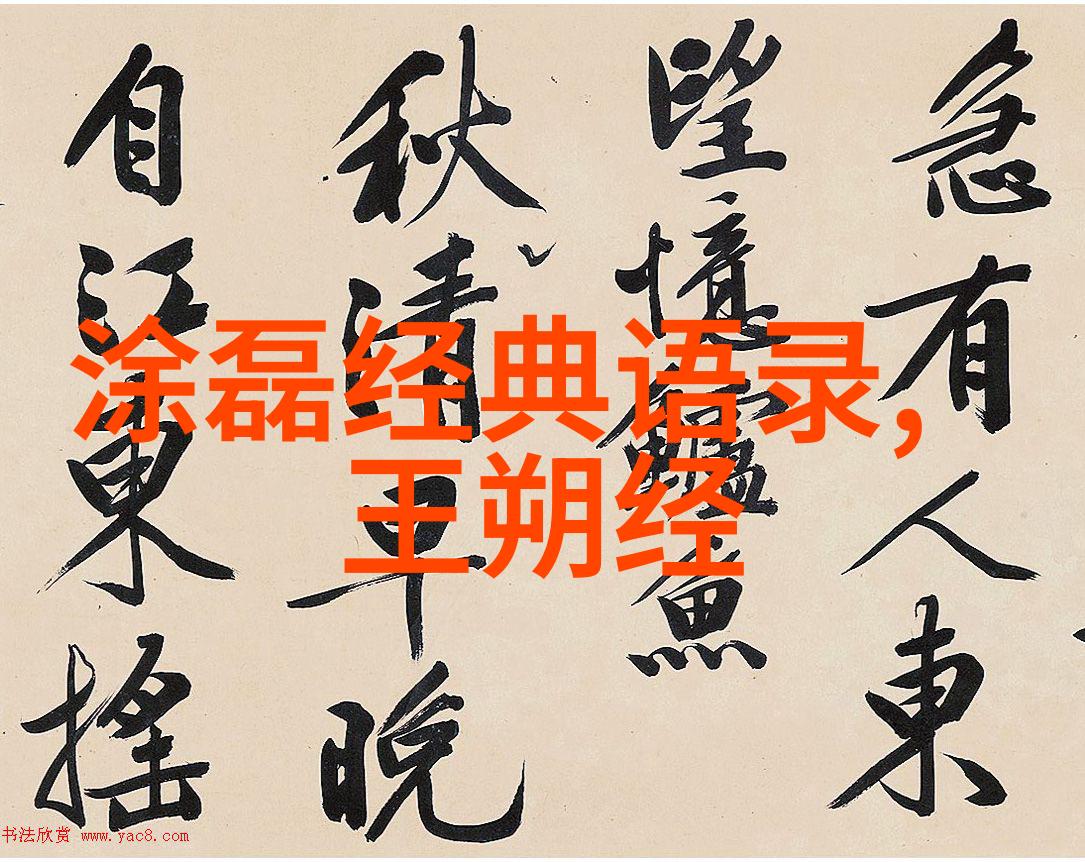 急有人東
望憶鱸魚
秋清早晚
自江東搖
涂磊经典语录,
王朔经
书法欣赏 www.yac8.com